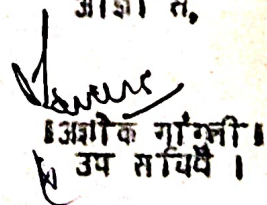 आज्ञा से,
॥अशोक गांगुली॥
उप सचिव ।